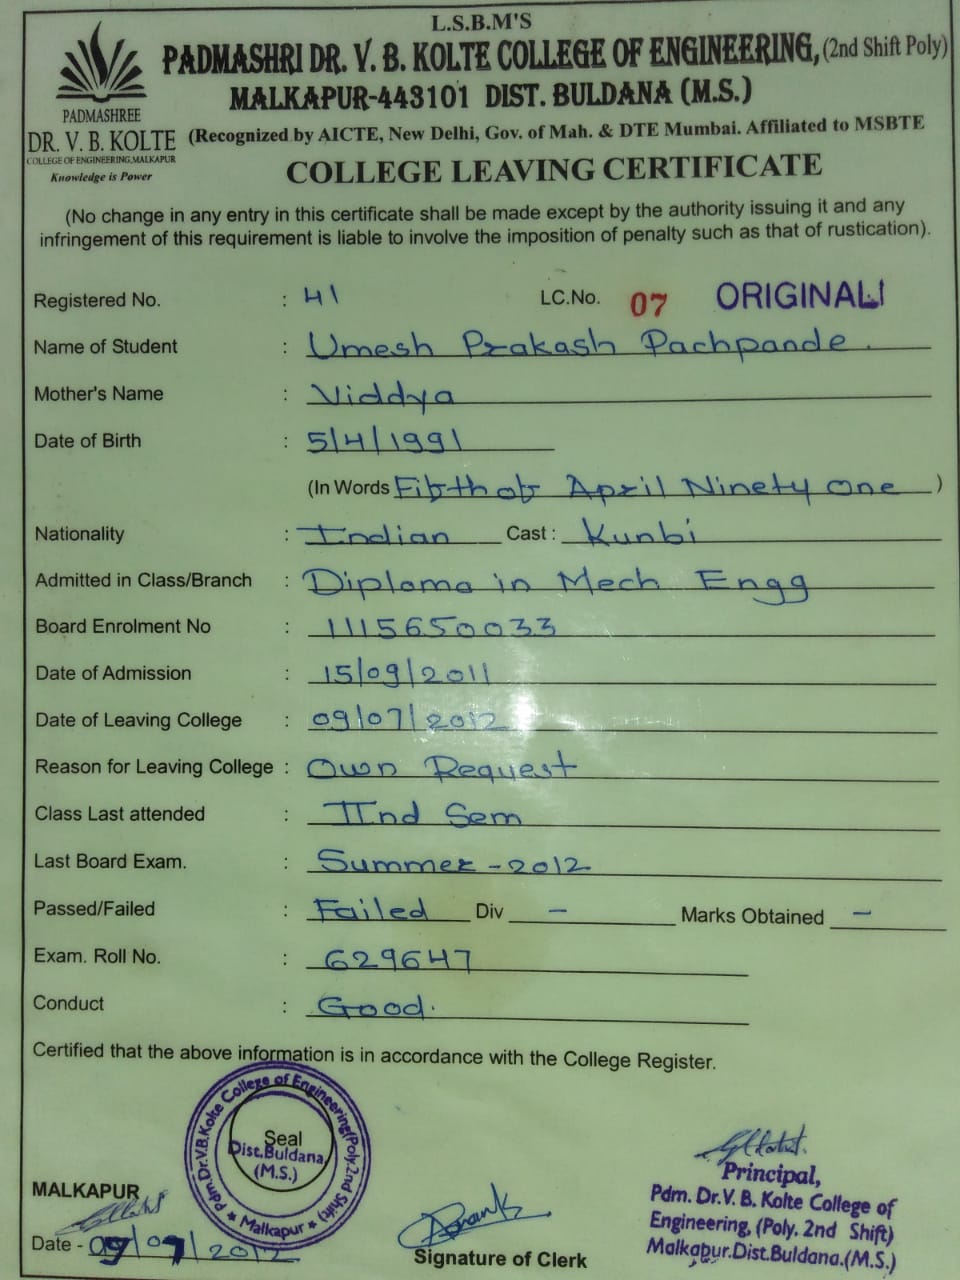 L.S.B.M'S
PADMASHRI DR. V. B. KOLTE COLLEGE OF ENGINEERING, (2nd Shift Poly)
MALKAPUR-443101 DIST. BULDANA (M.S.)
PADMASHREE
DR. V. B. KOLTE
COLLEGE OF ENGINEERING, MALKAPUR
Knowledge is Power
(Recognized by AICTE, New Delhi, Gov. of Mah. & DTE Mumbai. Affiliated to MSBTE
COLLEGE LEAVING CERTIFICATE
(No change in any entry in this certificate shall be made except by the authority issuing it and any
infringement of this requirement is liable to involve the imposition of penalty such as that of rustication).
Registered No. : 41 LC.No. 07 ORIGINAL
Name of Student : Umesh Prakash Pachpande.
Mother's Name : Viddya
Date of Birth : 5/4/1991
(In Words Fifth of April Ninety One )
Nationality : Indian Cast : Kunbi
Admitted in Class/Branch : Diploma in Mech Engg
Board Enrolment No : 1115650033
Date of Admission : 15/09/2011
Date of Leaving College : 09/07/2012
Reason for Leaving College : Own Request
Class Last attended : IInd Sem
Last Board Exam. : Summer - 2012
Passed/Failed : Failed Div - Marks Obtained -
Exam. Roll No. : 629647
Conduct : Good.
Certified that the above information is in accordance with the College Register.
Pdm. Dr.V.B.Kolte College of Engineering(Poly.2nd Shift)
Seal
Dist.Buldana.
(M.S.)
★ Malkapur ★
MALKAPUR
Date - 09/07/2012
Signature of Clerk
Principal,
Pdm. Dr.V. B. Kolte College of
Engineering, (Poly. 2nd Shift)
Malkapur.Dist.Buldana.(M.S.)